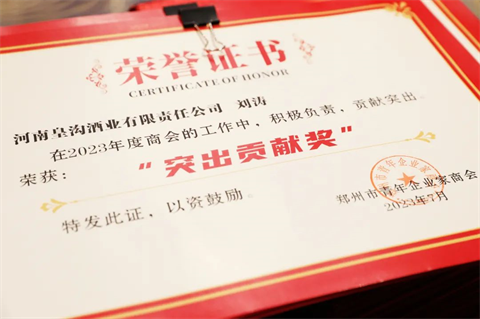 荣誉证书
CERTIFICATE OF HONOR
河南皇沟酒业有限责任公司 刘涛
在2023年度商会的工作中，积极负责，贡献突出。
荣获：
“突出贡献奖”
特发此证，以资鼓励。
郑州市青年企业家商会
2023年7月